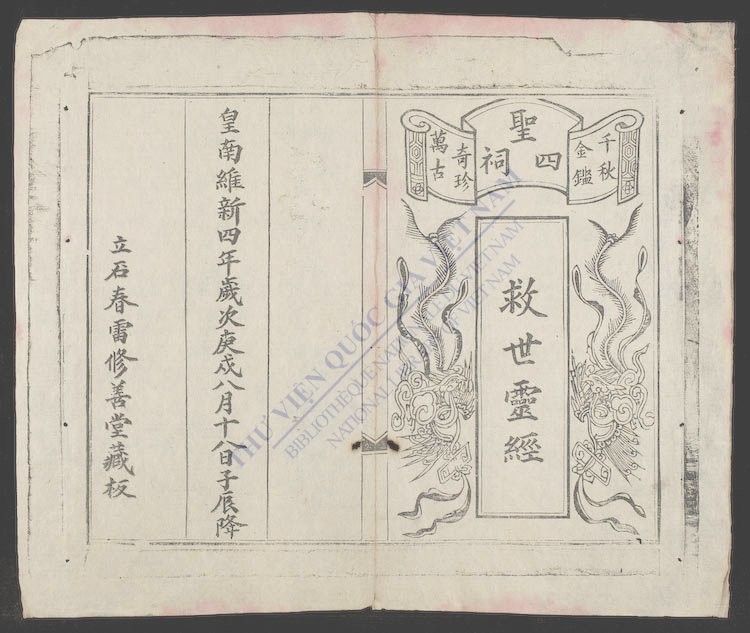 四聖祠
千秋
金鑑
萬古
奇珍
救世靈經
皇南維新四年歲次庚戌八月十八日子辰降
立石春雷修善堂藏板
THƯ VIỆN QUỐC GIA VIỆT NAM
BIBLIOTHÈQUE NATIONALE DU VIETNAM
NATIONAL LIBRARY OF VIETNAM